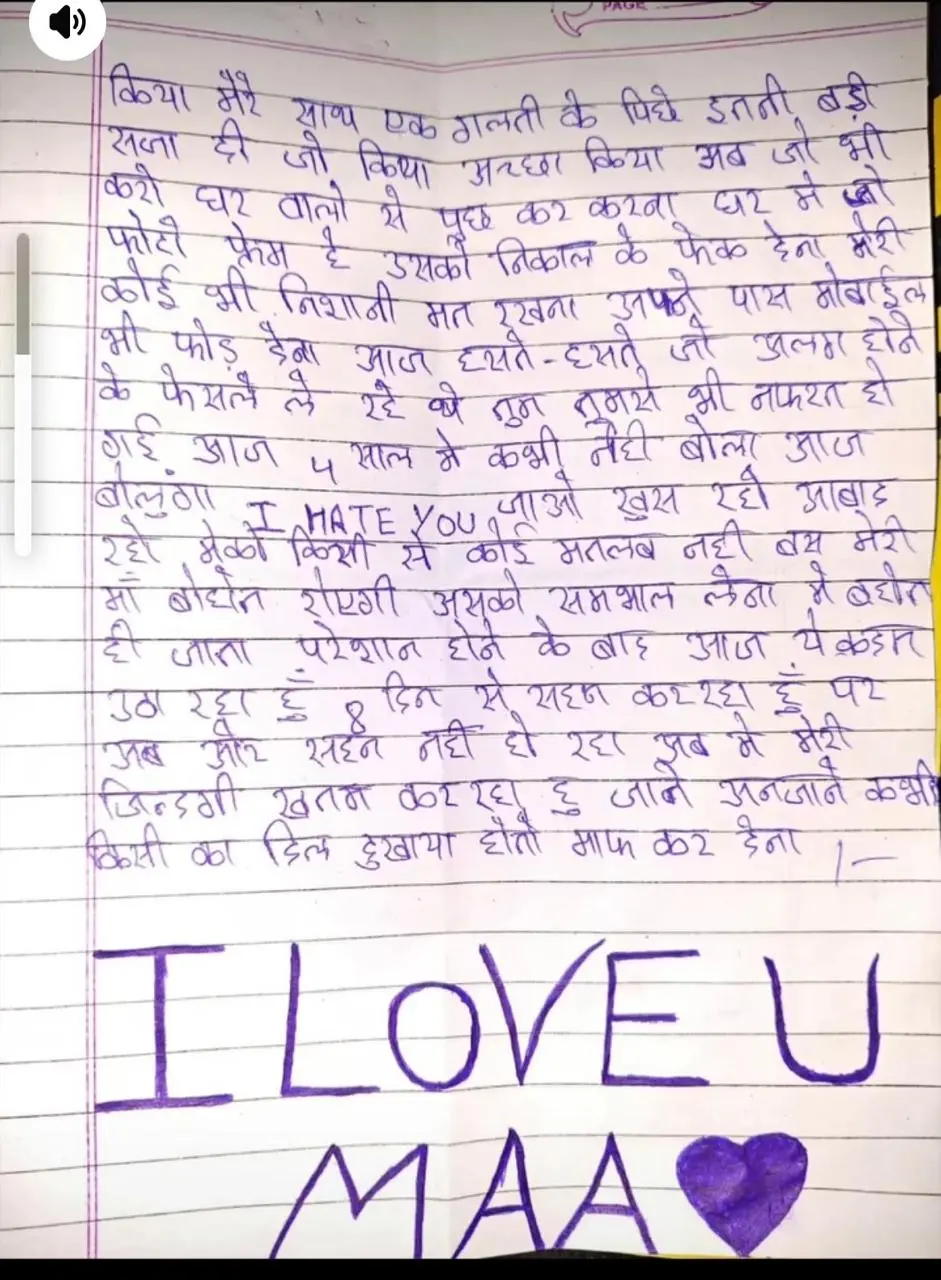 PAGE
किया मेरे साथ एक गलती के पिछे इतनी बड़ी
सजा दी जो किया अच्छा किया अब जो भी
करो घर वालो से पुछ कर करना घर मे जो
फोटो फ्रेम है उसको निकाल के फेक देना मेरी
कोई भी निशानी मत रखना अपने पास मोबाईल
भी फोड़ दैना आज हसते-हसते जो अलग होने
के फेसले ले रहे थे तुम तुमसे भी नफरत हो
गई आज 4 साल मे कभी नही बोला आज
बोलुंगा I HATE YOU जाओ खुस रहो आबाद
रहो मेको किसी से कोई मतलब नही बस मेरी
माँ बोहोत रोएगी उसको समभाल लेना मे बहोत
ही जाता परेशान होने के बाद आज ये कदम
उठा रहा हुँ 8 दिन से सहन कर रहा हुँ पर
अब और सहन नही हो रहा अब मे मेरी
जिन्दगी खतम कर रहा हु जाने अनजाने कभी
किसी का दिल दुखाया होतो माफ कर देना
I LOVE U
MAA